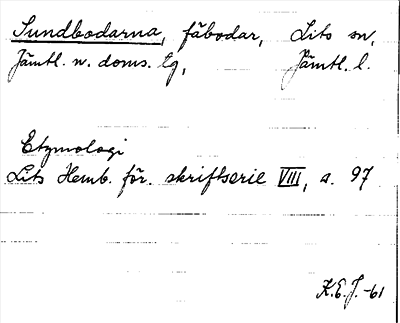 Sundbodarna, fäbodar, Lits sn,
Jämtl. n. doms. tg, Jämtl. l.
Etymologi
Lits Hemb. för. skriftserie VIII, s. 97
K.E.J. -61